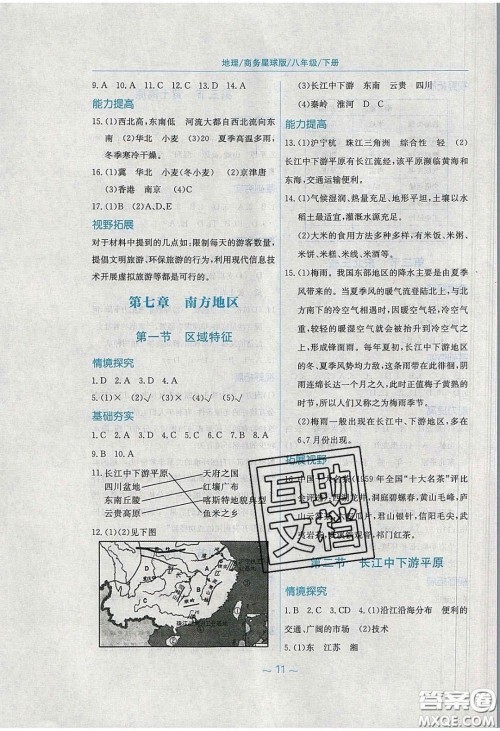 地理/商务星球版/八年级/下册
9. A　10. A　11. C　12. D　13. D　14. A
能力提高
15. (1)西北高、东南低　河流大都自西北流向东南　(2)华北　小麦　(3)20　夏季高温多雨，冬季寒冷干燥。
16. (1)冀　华北　小麦(冬小麦)　(2)京津唐
(3)香港　南京　(4)D
17. (1)B　(2)A、D、E
视野拓展
对于材料中提到的几点如：限制每天的游客数量，
提倡文明旅游、环保旅游的行为，利用现代信息技
术开展虚拟旅游等都是可行的。
第七章　南方地区
第一节　区域特征
情境探究
1. D　2. A　3. D　4. A
5. (1)×　(2)√　(3)×　(4)√　(5)√
基础夯实
1. C　2. D　3. A　4. C　5. C　6. A　7. B　8. A
9. B　10. A
11. 长江中下游平原　天府之国
四川盆地　红壤广布
东南丘陵　喀斯特地貌典型
云贵高原　鱼米之乡
12. (1)(2)见下图
(3)长江中下游　东南　云贵　四川
(4)秦岭　淮河　D　C
能力提高
13. (1)沪宁杭　珠江三角洲　综合性　轻　(2)
长江中下游平原有长江流经，该平原濒临黄海和
东海，交通运输便利。
14. (1)气候湿润、热量充足、地形平坦，土壤以水
稻土最适宜，灌溉水源充足。
(2)大米的食用方法多种多样，有米饭、米粥、
米饼、米糕、米粉等。
15. (1)梅雨。我国东部地区的降水主要是由夏季
风带来的。当夏季风的暖湿气流登陆北上，与
北方的冷空气相遇时，因暖空气轻，冷空气重，
比较轻的暖湿空气就会被抬升到冷空气之
上，形成锋面雨。每年夏初，长江中下游地区的
冬、夏季风势均力敌，故该雨带在此徘徊，阴
雨连绵长达一个月之久，此时正值梅子黄熟的
时节，所以人们又称之为梅雨季节。
(2)梅雨一般出现在长江中、下游地区，多在
6、7月份出现。
拓展视野
1959年全国“十大名茶”评比
洞庭碧螺春、黄山毛
六安瓜片、君山银针、信阳毛尖、武
祁门红茶。
第二节　长江中下游平原
情境探究
1. B　2. C　3. CD　4. (1)沿江沿海分布　便利的
交通、广阔的市场　(2)技术
5. (1)东　江苏　湘
～ 11 ～
互助
文档
答案圈
MXQE.COM